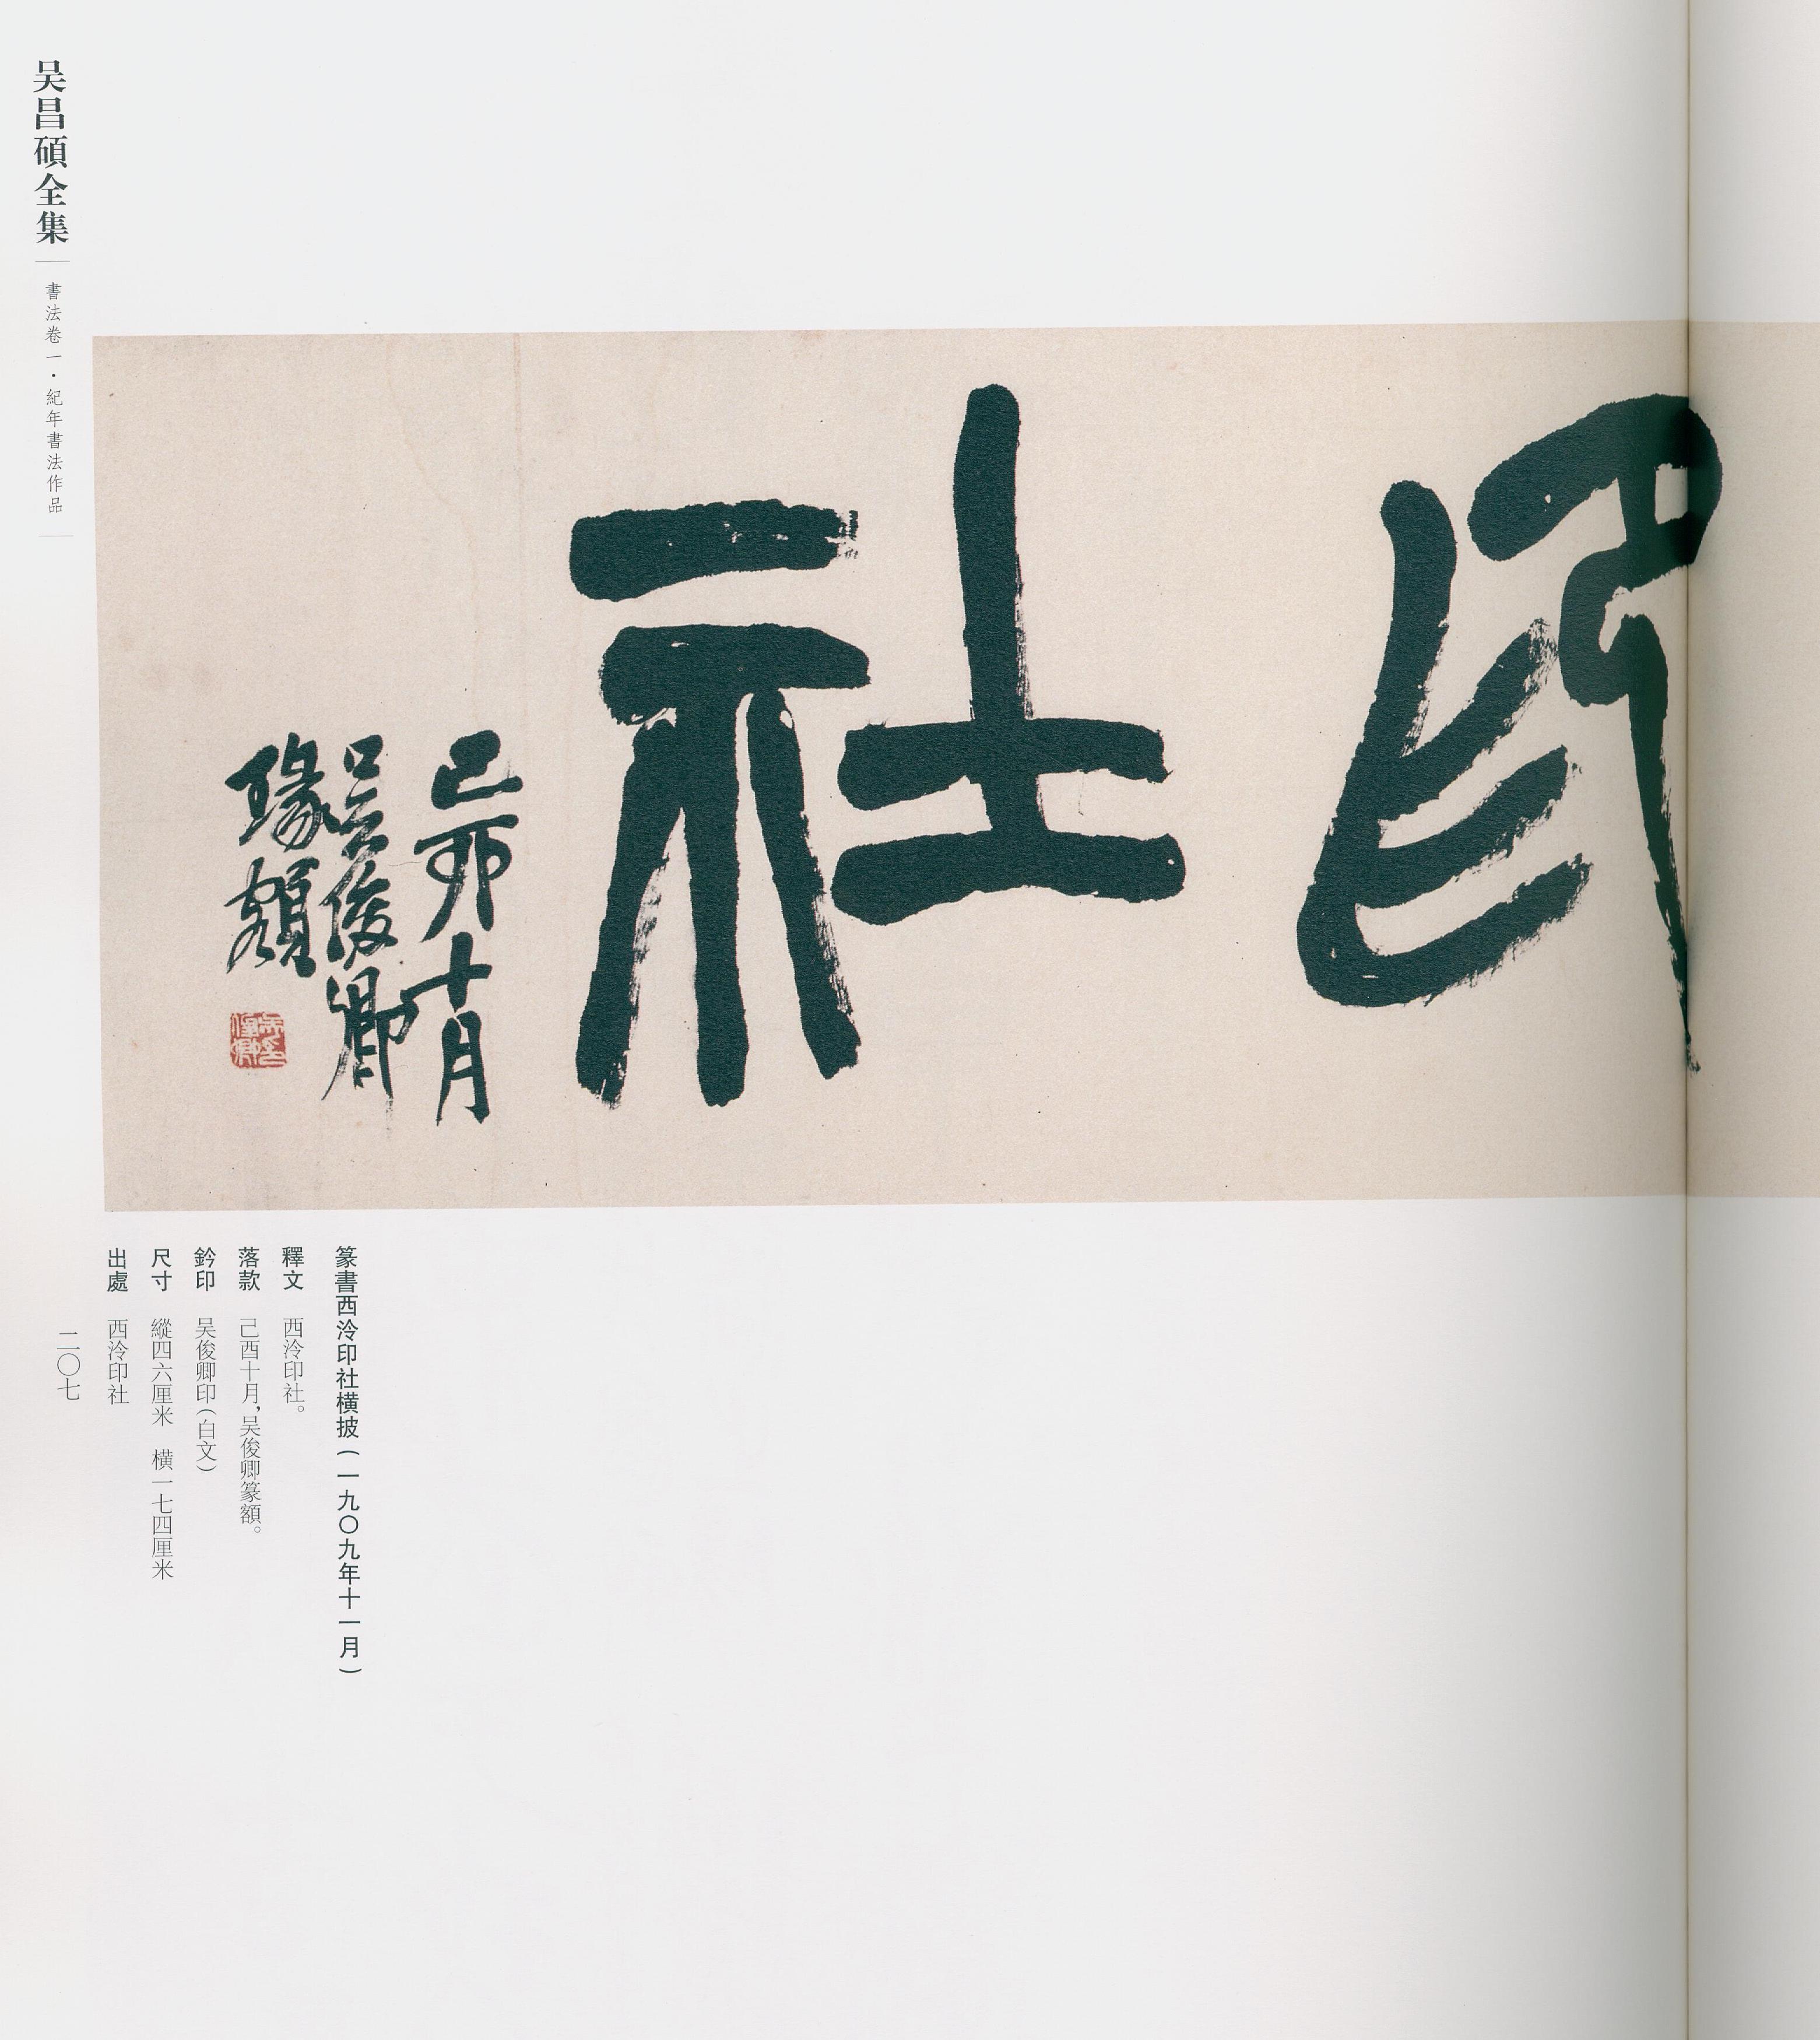 吴昌碩全集
書法卷一·紀年書法作品
印社
己丣十月
吴俊卿
瑑額
吴俊卿印
篆書西泠印社横披(一九〇九年十一月)
釋文 西泠印社。
落款 己酉十月,吴俊卿篆額。
鈐印 吴俊卿印(白文)
尺寸 縱四六厘米 橫一七四厘米
出處 西泠印社
二〇七